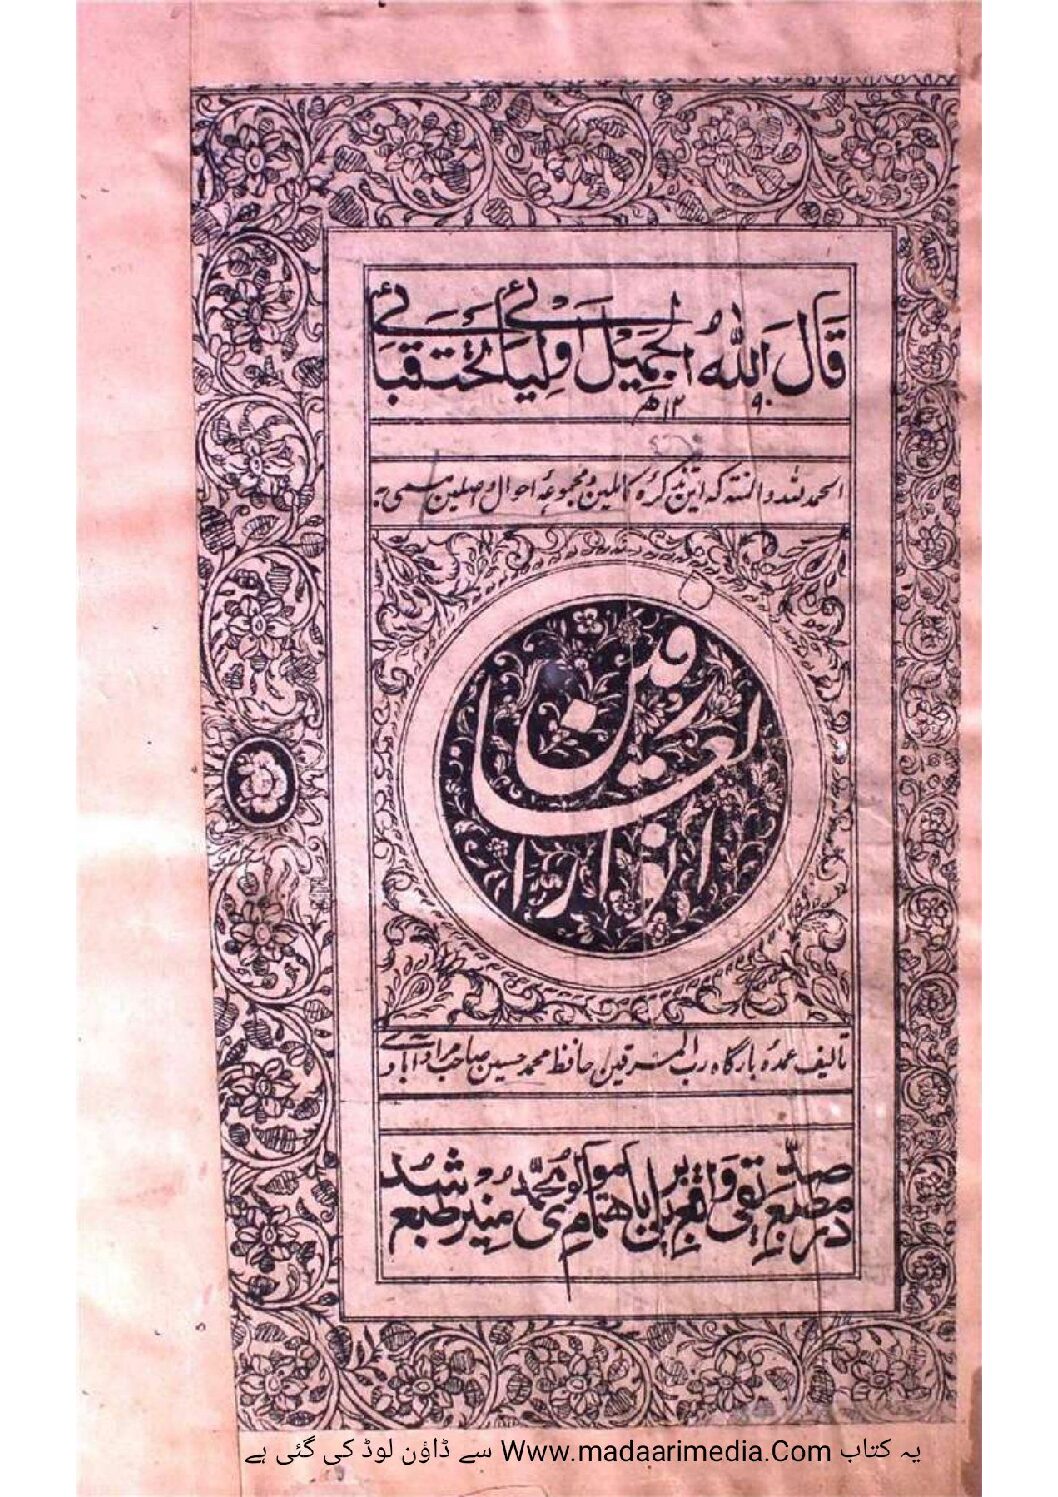 قَالَ اللّٰهُ الْجَمِيْلُ اَوْلِيَائِيْ تَحْتَ قَبَائِيْ
١٢٩٠ھ
الحمد للہ والمنتہ کہ این تذکرۂ کاملین ومجموعۂ احوال واصلین مسمی بہ
انوار العارفین
تالیف عمدۂ بارگاہ رب المشرقین حافظ محمد حسین صاحب مرادآبادی
در مطبع صدیقی واقع بریلی باہتمام مولوی محمد منیر طبع شد
یہ کتاب Www.madaarimedia.Com سے ڈاؤن لوڈ کی گئی ہے